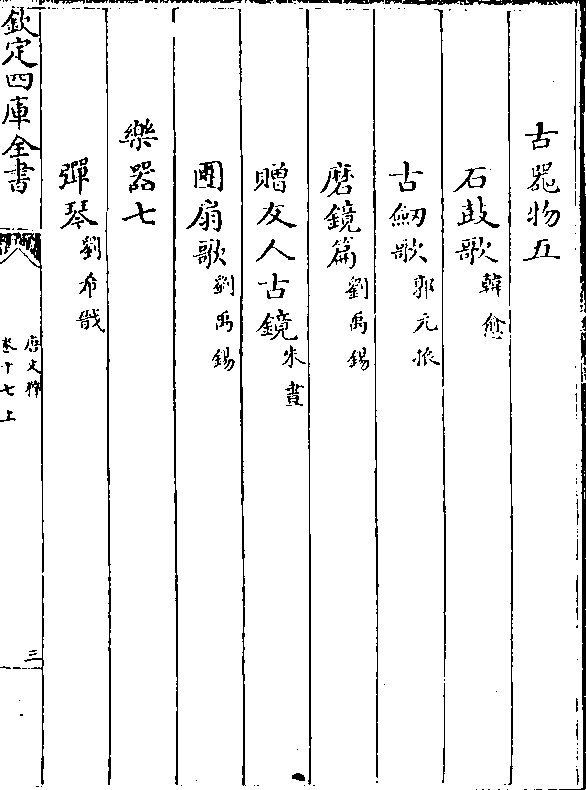 古器物五
石鼓歌韓愈
古劒歌郭元振
磨鏡篇劉禹錫
贈友人古鏡朱晝
團扇歌劉禹錫
樂器七
彈琴劉希戩
欽定四庫全書
唐文粹
卷十七上
三